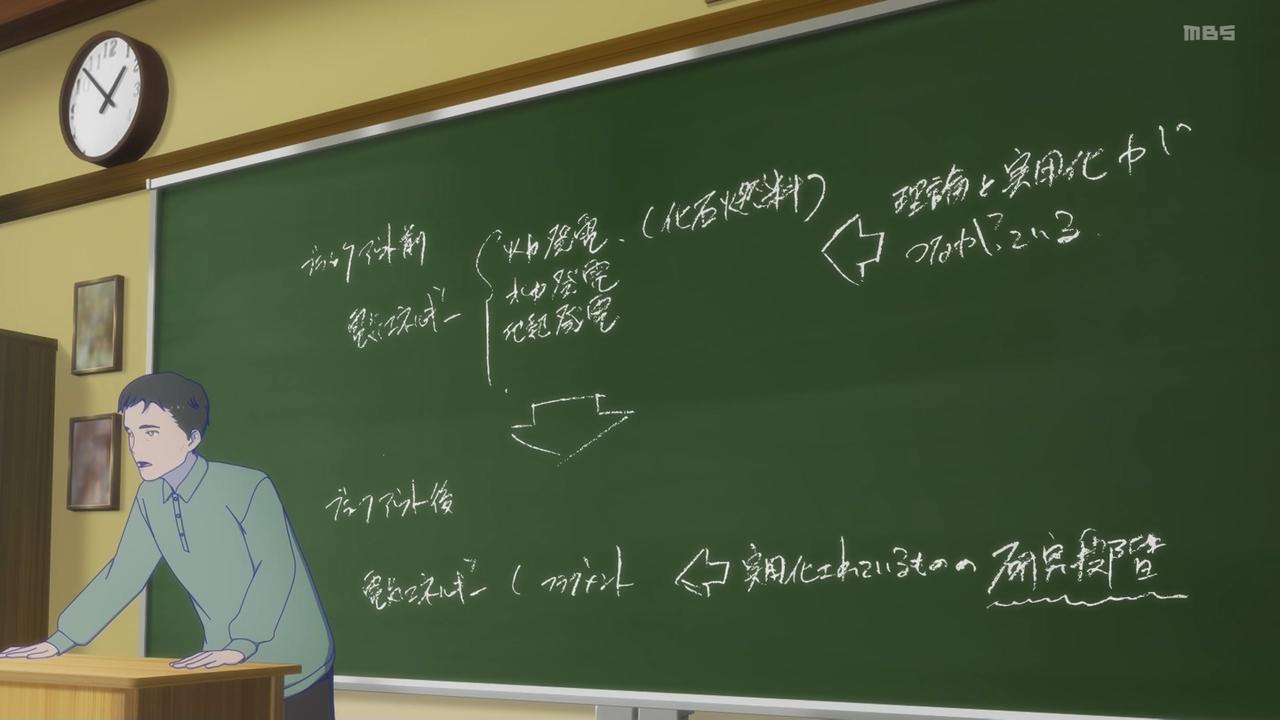 MBS
12
ブラックアウト前
電気エネルギー
火力発電、(化石燃料)
水力発電
地熱発電
理論と実用化が
つながっている
ブラックアウト後
電気エネルギー ( フラグメント
実用化されているものの 研究段階